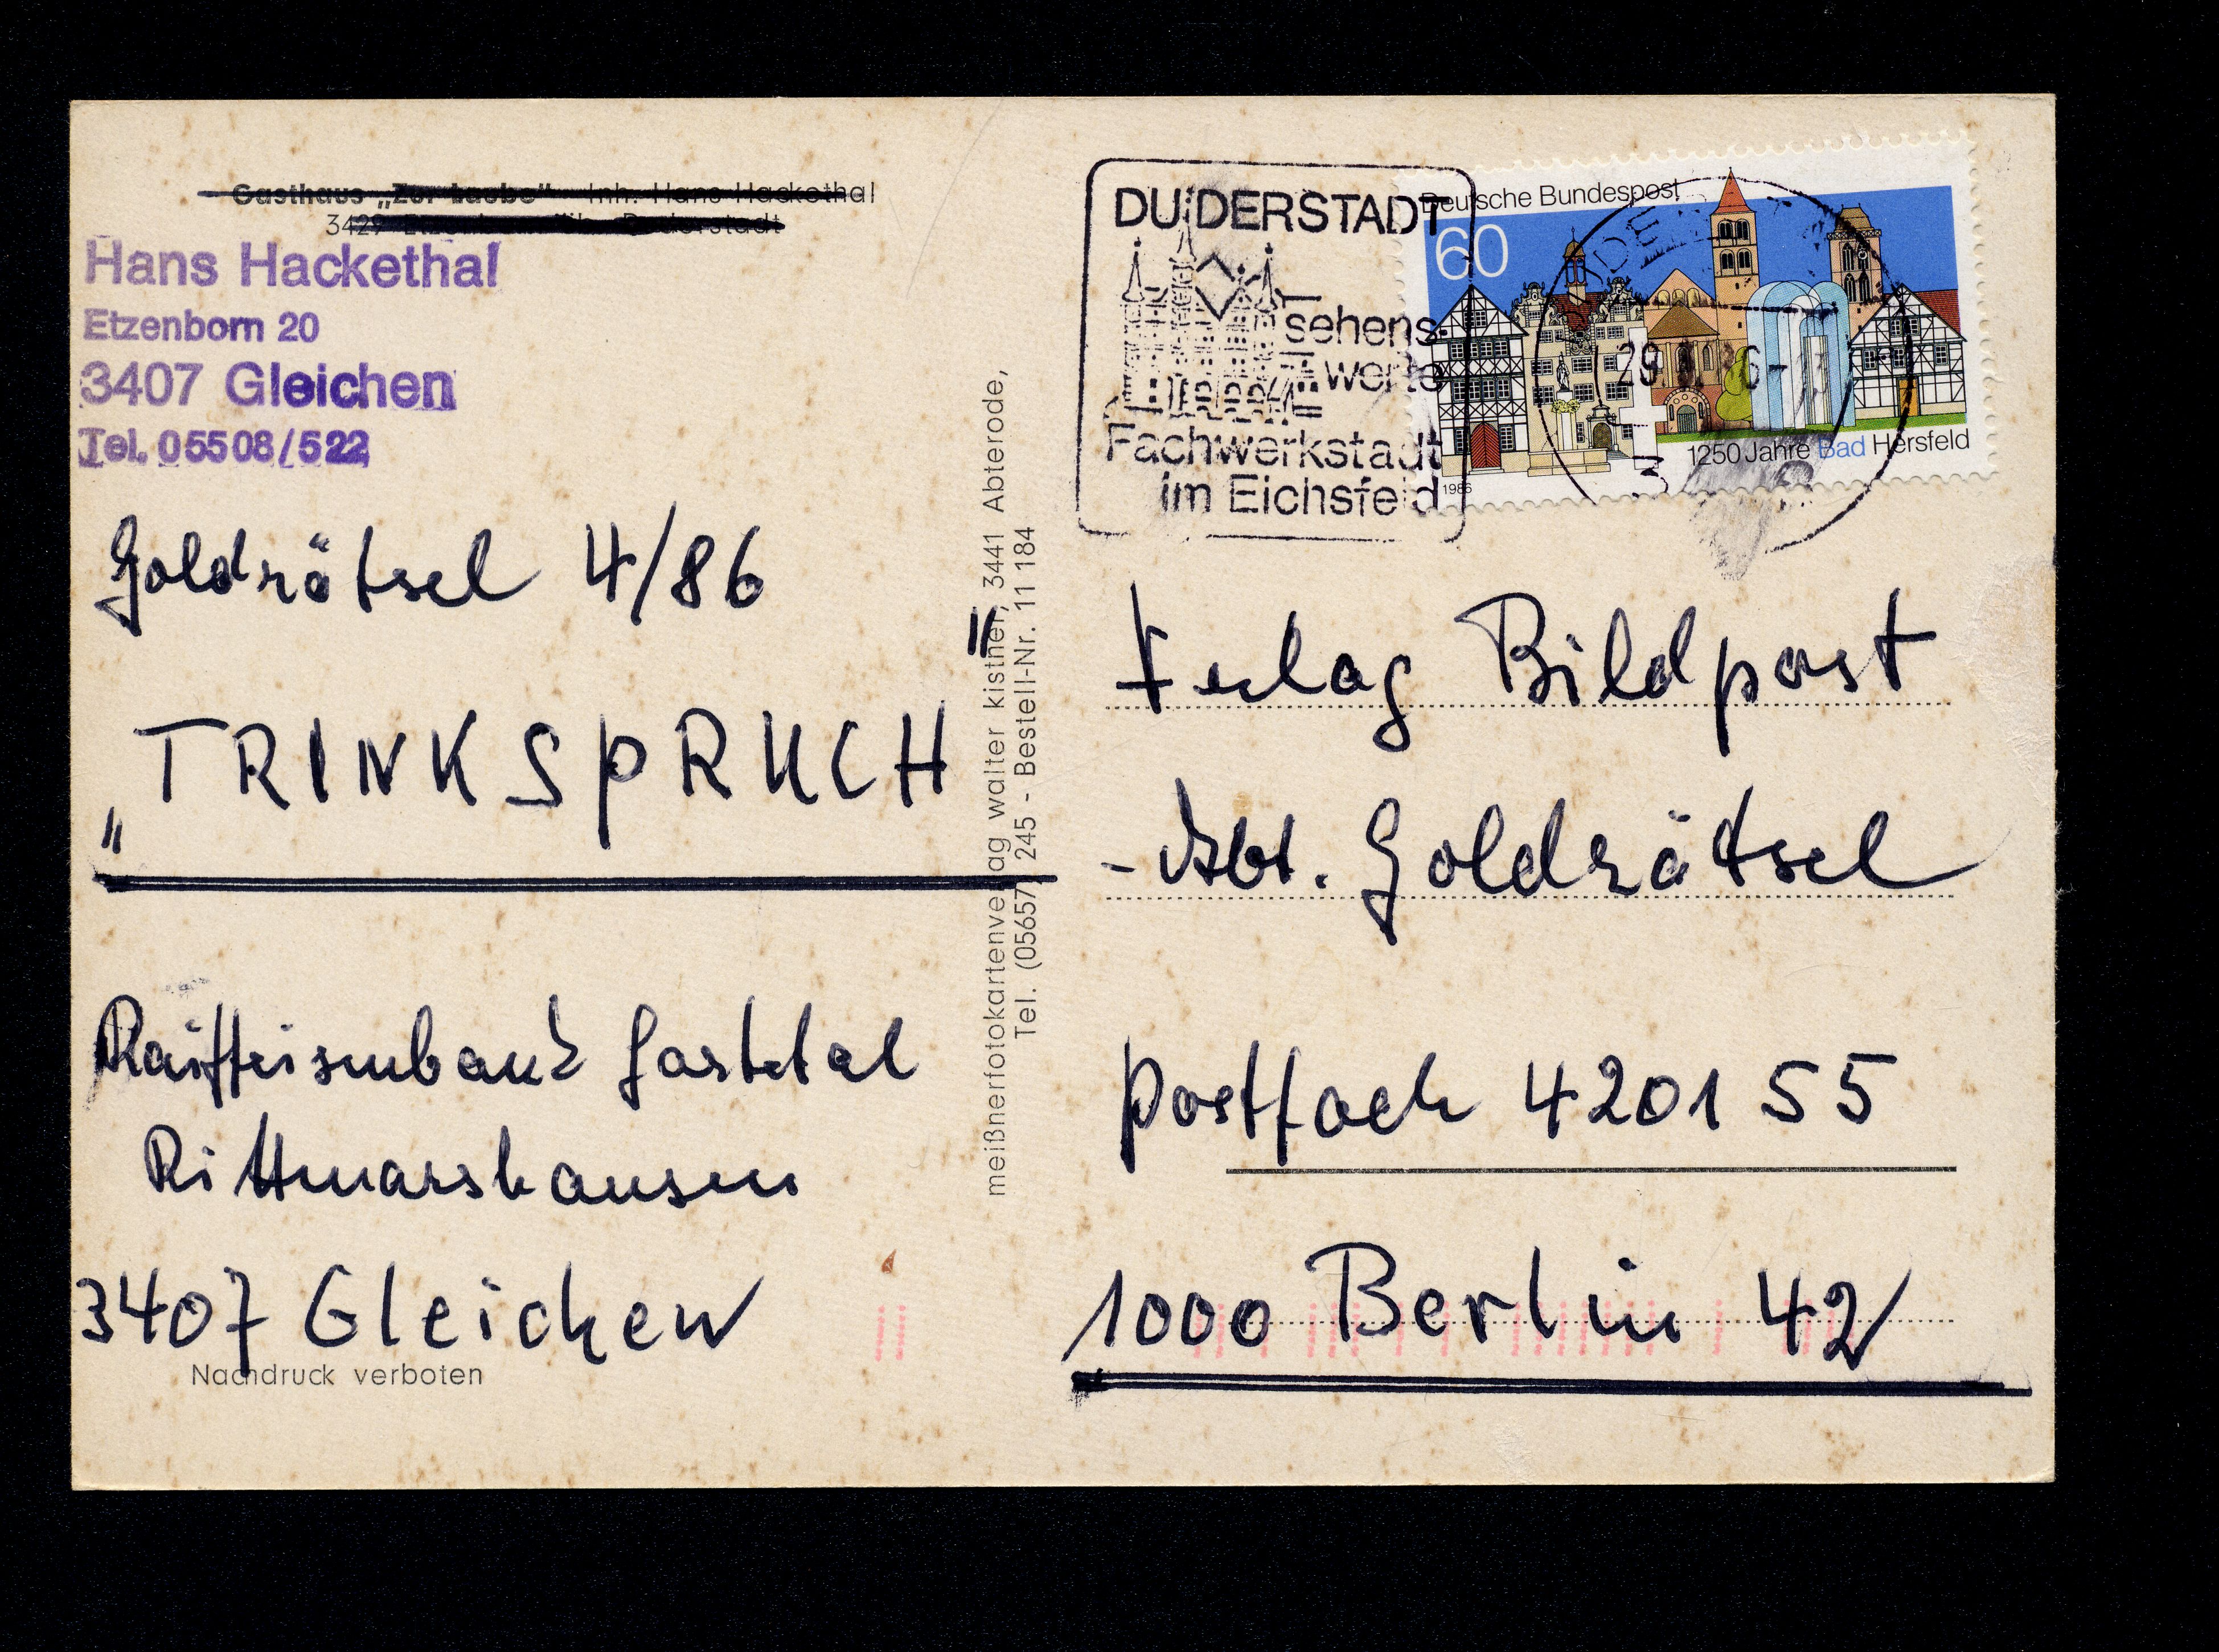 Gasthaus „Zur Laube" Inh. Hans Hackethal
3429 Etzenborn Duderstadt
Hans Hackethal
Etzenborn 20
3407 Gleichen
Tel. 05508/522
Goldrätsel 4/86
„TRINKSPRUCH"
Raiffeisenbank Gartetal
Rittmarshausen
3407 Gleichen
Nachdruck verboten
meißnerfotokartenverlag walter kistner, 3441 Abterode,
Tel. (05657) 245 - Bestell-Nr. 11 184
DUDERSTADT
sehens-
werte
Fachwerkstadt
im Eichsfeld
Deutsche Bundespost
60
1250 Jahre Bad Hersfeld
1986
Verlag Bildpost
- Abt. Goldrätsel
Postfach 420155
1000 Berlin 42